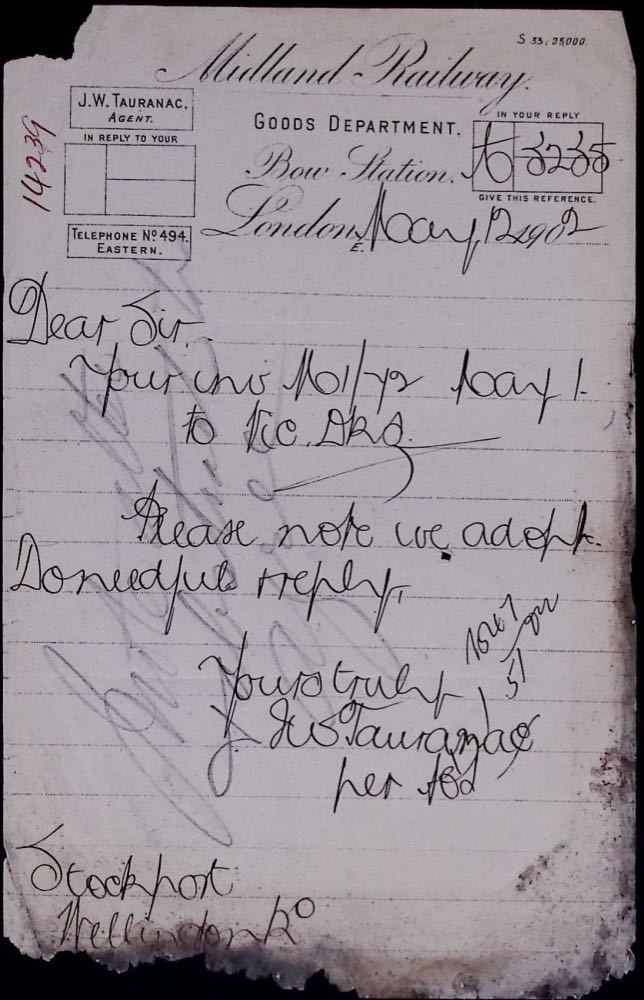 S 33.25000.
Midland Railway.
J.W. TAURANAC,
AGENT.
GOODS DEPARTMENT.
IN YOUR REPLY
14239
IN REPLY TO YOUR
Bow Station.
5235
GIVE THIS REFERENCE.
London, E. May 12 1902
TELEPHONE No 494.
EASTERN.
Dear Sir.
Your inv May 1.
to
Please note we adopt.
Do needful & reply,
Yours truly
JW Tauranac
per
Stockport
Wellington Rd